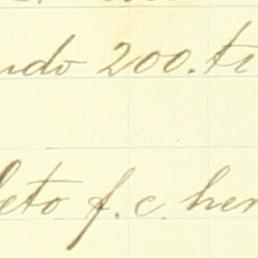 ndo 200. ti
leto f. c. her